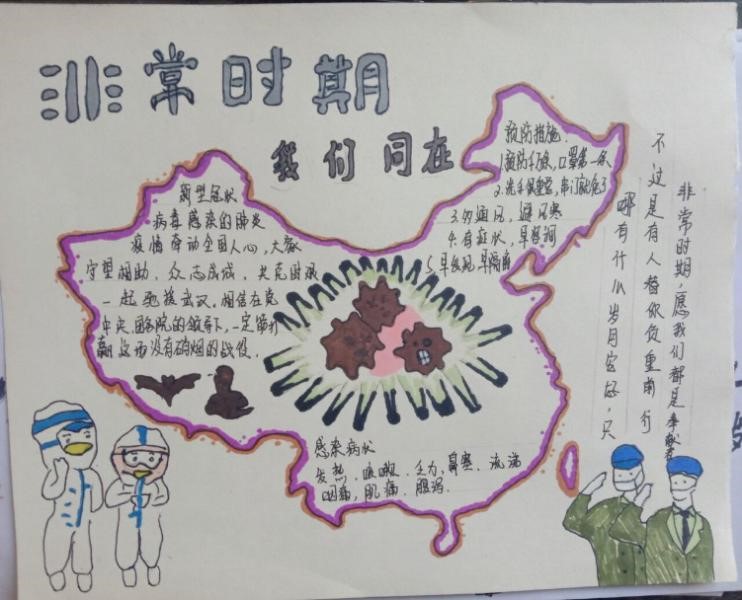 非常时期
我们同在
新型冠状
病毒感染的肺炎
疫情牵动全国人心,大家
守望相助、众志成城、共克时艰
一起驰援武汉。相信在党
中央、国务院的领导下,一定能打
赢这场没有硝烟的战役。
预防措施
1.预防千万条,口罩第一条
2.洗手很重要,串门就免了
3.勿通风,避风寒
4.有症状,早
5.早发现,早隔离
感染病状
发热、咳嗽、乏力、鼻塞、流涕
咽痛、肌痛、腹泻.
非常时期,愿我们都是奉献者
哪有什么岁月安好,只
不过是有人替你负重前行